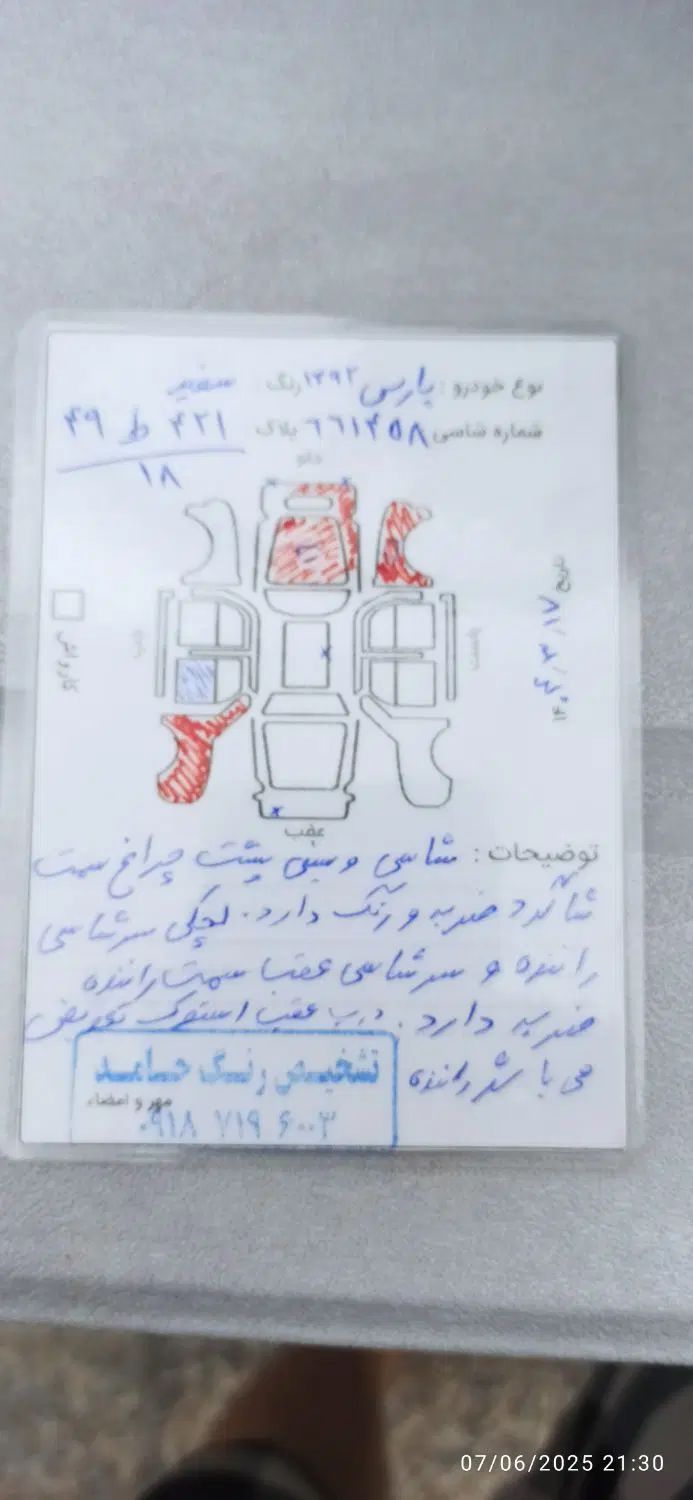 نوع خودرو : پارس ۱۳۹۲ رنگ : سفید
شماره شاسی ۶۶۱۴۵۸ پلاک ۴۲۱ ط ۴۹
۱۸
جلو
تاریخ ۱۸ / ۳ /
چپ
راست
کارواش
عقب
توضیحات : شاسی و سینی پشت چراغ سمت
شاگرد ضربه و رنگ دارد. لچکی سرشاسی
راننده و سرشاسی عقب سمت راننده
ضربه دارد. درب عقب استوک تعویض
می باشد راننده
تشخیص رنگ حامد
مهر و امضاء
۰۹۱۸ ۷۱۹ ۶۰۰۳
07/06/2025 21:30